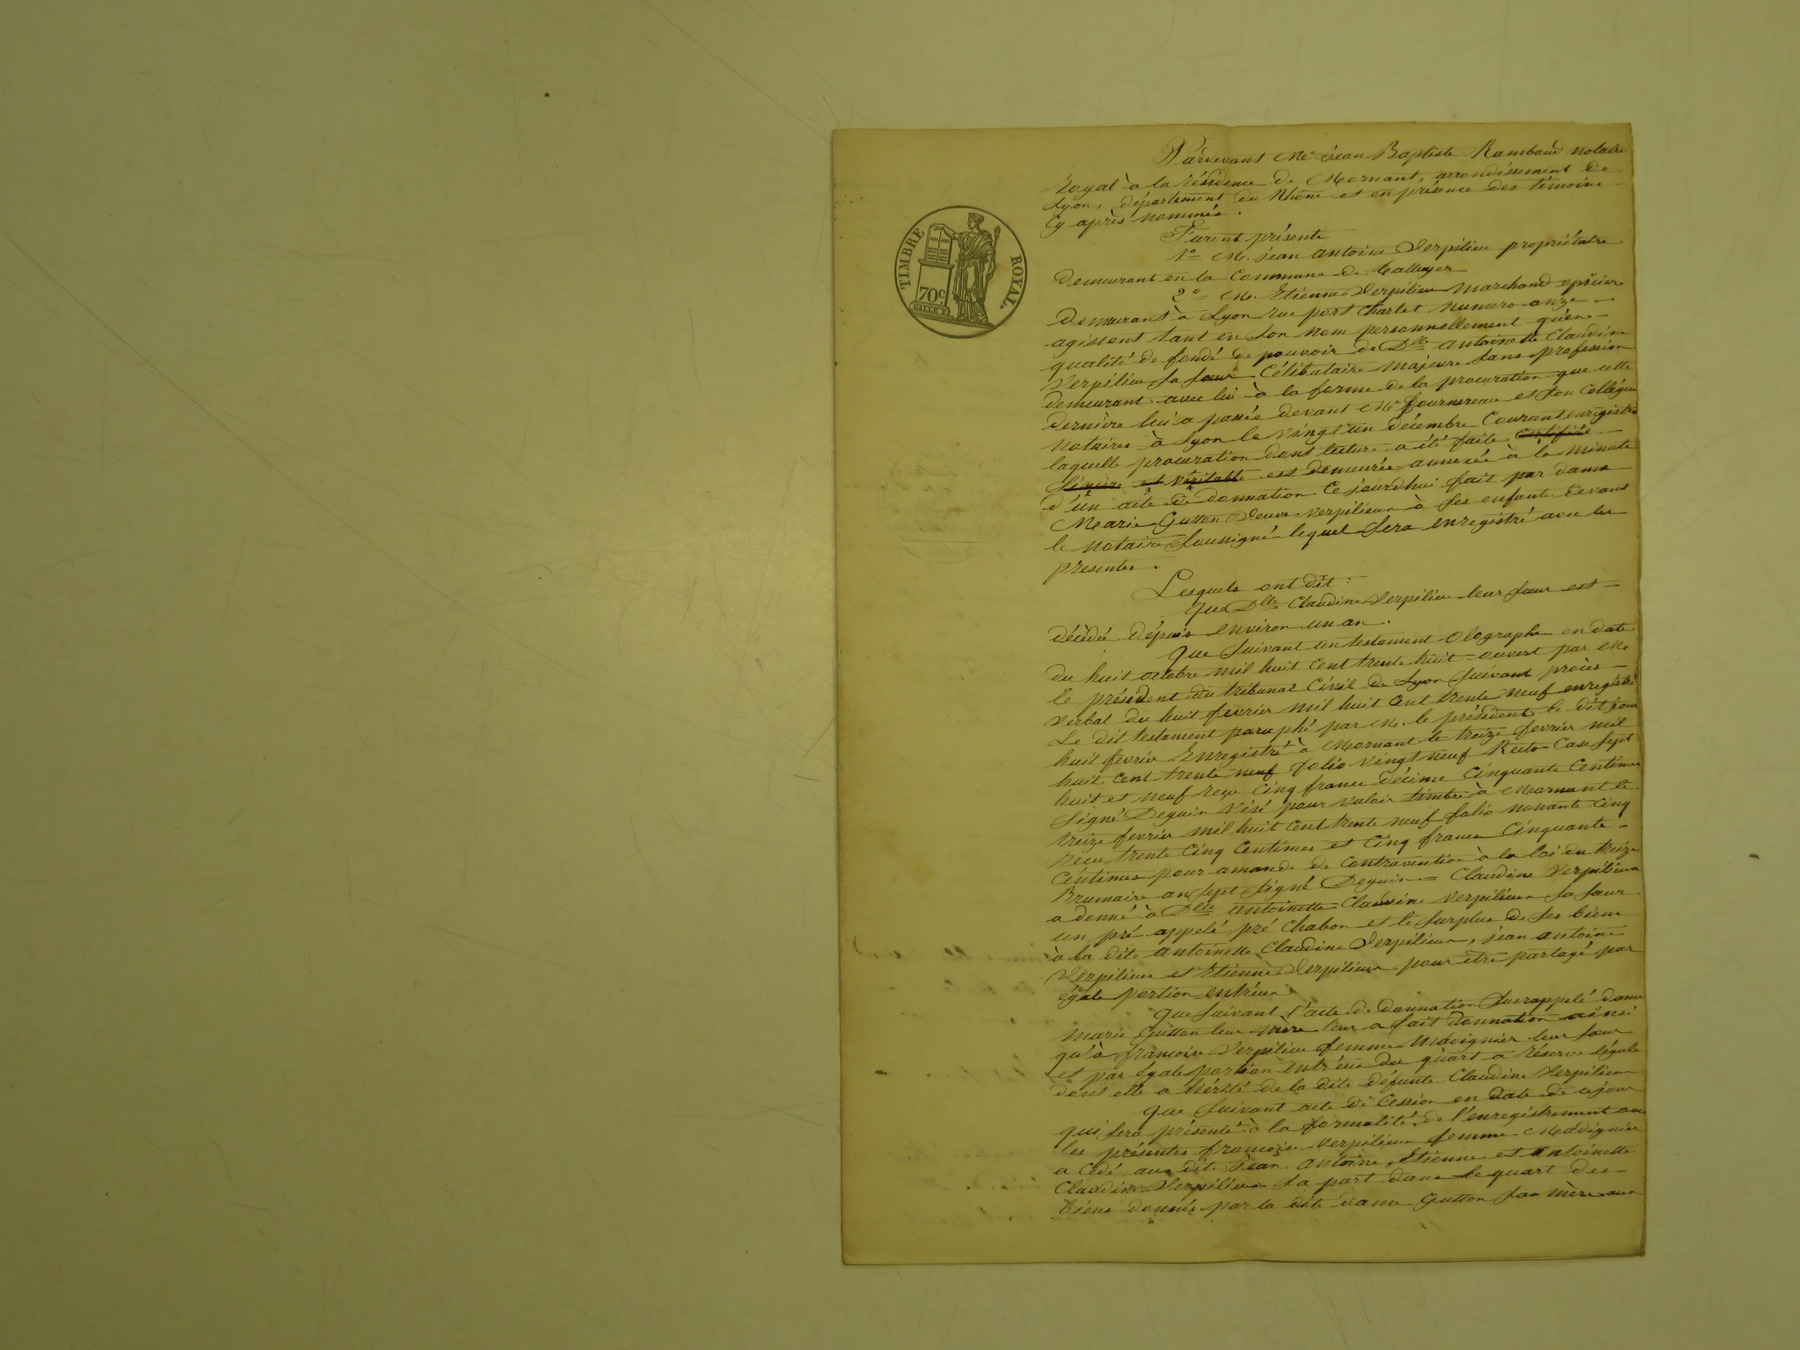 TIMBRE ROYAL
70c
Pardevant Me Jean Baptiste Rambaud notaire
Royal à la résidence de Mornant, arrondissement de
Lyon, département du Rhône et en présence des témoins
Cy après nommés.
Furent présents
1° M. Jean Antoine Verpilieu propriétaire
demeurant en la Commune de Talluyer
2° M. Etienne Verpilieu Marchand epicier
demeurant à Lyon rue port Charlet Numero onze
agissent tant en Son Nom personnellement qu'en
qualité de fondé de pouvoir de Dlle Antoinette Claudine
Verpilieu Sa Sœur Célibataire Majeure Sans profession
demeurant avec lui à la forme de la procuration que cette
dernière lui a passée devant Me fournereau et Son Collègue
Notaires à Lyon le vingt un décembre Courant enregistré
laquelle procuration dont lecture a été faite certifiée
Sincère et Véritable est demeurée annexée à la minute
d'un acte de donnation Ce jourdhui fait par dame
Marie Gutton Veuve Verpilieux à Ses enfants devant
le Notaire Soussigné lequel Sera enregistré avec les
presentes.
Lesquels ont dit :
Que Dlle Claudine Verpilieu leur Sœur est
décédée depuis environ un an.
Que Suivant un testament Olographe en date
du huit octobre mil huit cent trente huit ouvert par M.
le président du tribunal Civil de Lyon Suivant procès
verbal du huit fevrier mil huit Cent trente neuf enregistré
Le dit testament paraphé par M. le président le dit jour
huit février Enregistré à Mornant le treize fevrier mil
huit Cent trente neuf folio vingt neuf Recto Case Sept
huit et neuf reçu Cinq francs décime Cinquante Centimes
Signé Deguin Visé pour valoir timbre à Mornant le
treize fevrier mil huit Cent trente neuf folio nonante Cinq
recu trente Cinq Centimes et Cinq francs Cinquante
Centimes pour amande de Contravention à la loi du treize
Brumaire an Sept Signé Deguin = Claudine Verpilieux
a donné à Dlle Antoinette Claudine Verpilieux Sa Sœur
un pré appelé pré Chabon et le Surplus de Ses biens
à la dite Antoinette Claudine Verpilieux, Jean Antoine
Verpilieux et Etienne Verpilieux pour être partagé par
égale portion entr'eux
Que Suivant l'acte de donnation Susrappelé dame
Marie Gutton leur Mère leur a fait donnation ainsi
qu'à françoise Verpilieu femme Mavignier leur Sœur
et par égale portion entr'eux du quart a réserve légale
dont elle a hérité de la dite défunte Claudine Verpilieux
Que Suivant acte de Cession en date de ce jour
qui Sera présenté à la formalité de l'enregistrement avec
les présentes françoise Verpilieux femme Mavignier
a Cédé aux dits Jean Antoine, Etienne et Antoinette
Claudine Verpilieux Sa part dans le quart des
biens donnés par la dite dame Gutton Sa Mère aux